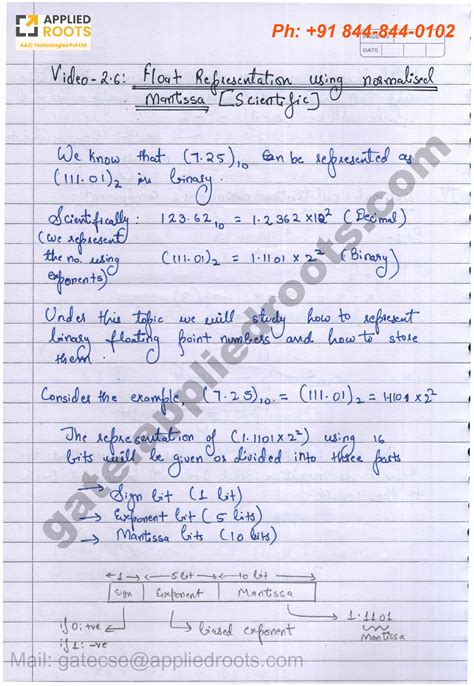 APPLIED
ROOTS
AAIC Technologies Pvt Ltd
Ph: +91 844-844-0102
DATE
Video-2.6: Float Representation using normalised
Mantissa [Scientific]
We know that (7.25)₁₀ can be represented as
(111.01)₂ in binary.
Scientifically: 123.62₁₀ = 1.2362×10² (Decimal)
(we represent
the no. using (111.01)₂ = 1.1101 × 2² (Binary)
exponents)
Under this topic we will study how to represent
binary floating point numbers and how to store
them.
Consider the example, (7.25)₁₀ = (111.01)₂ = 1.1101×2²
The representation of (1.1101×2²) using 16
bits will be given or divided into three parts
→ Sign bit (1 bit)
→ Exponent bit (5 bits)
→ Mantissa bits (10 bits)
←1→ ←5 bit→ ←10 bit→
Sign Exponent Mantissa
if 0: +ve
if 1: -ve
biased exponent
1.1101
Mantissa
gate.appliedroots.com
Mail: gatecse@appliedroots.com